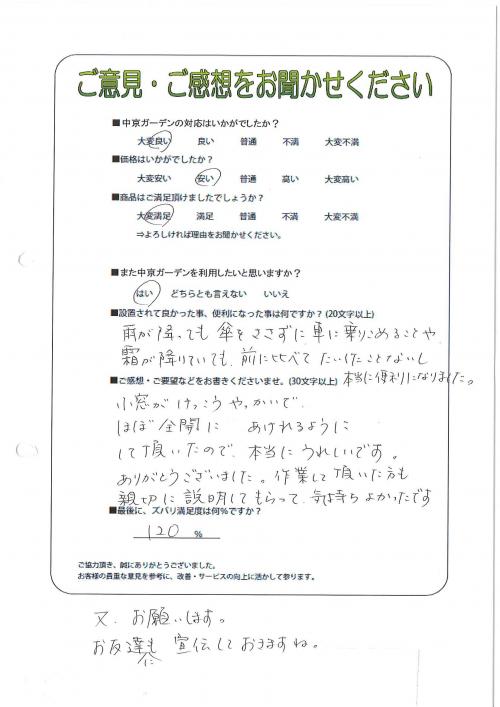 ご意見・ご感想をお聞かせください
■中京ガーデンの対応はいかがでしたか?
大変良い 良い 普通 不満 大変不満
■価格はいかがでしたか?
大変安い 安い 普通 高い 大変高い
■商品はご満足頂けましたでしょうか?
大変満足 満足 普通 不満 大変不満
⇒よろしければ理由をお聞かせください。
■また中京ガーデンを利用したいと思いますか?
はい どちらとも言えない いいえ
■設置されて良かった事、便利になった事は何ですか?(20文字以上)
雨が降っても傘をささずに車に乗りこめることや
霜が降りていても、前に比べてたいしたことないし
本当に便利になりました。
■ご感想・ご要望などをお書きくださいませ。(30文字以上)
小窓がけっこうやっかいで、
ほぼ全開にあけれるように
して頂いたので、本当にうれしいです。
ありがとうございました。作業して頂いた方も
親切に説明してもらって、気持ちよかったです
■最後に、ズバリ満足度は何%ですか?
120 %
ご協力頂き、誠にありがとうございました。
お客様の貴重な意見を参考に、改善・サービスの向上に活かして参ります。
又、お願いします。
お友達にも宣伝しておきますね。